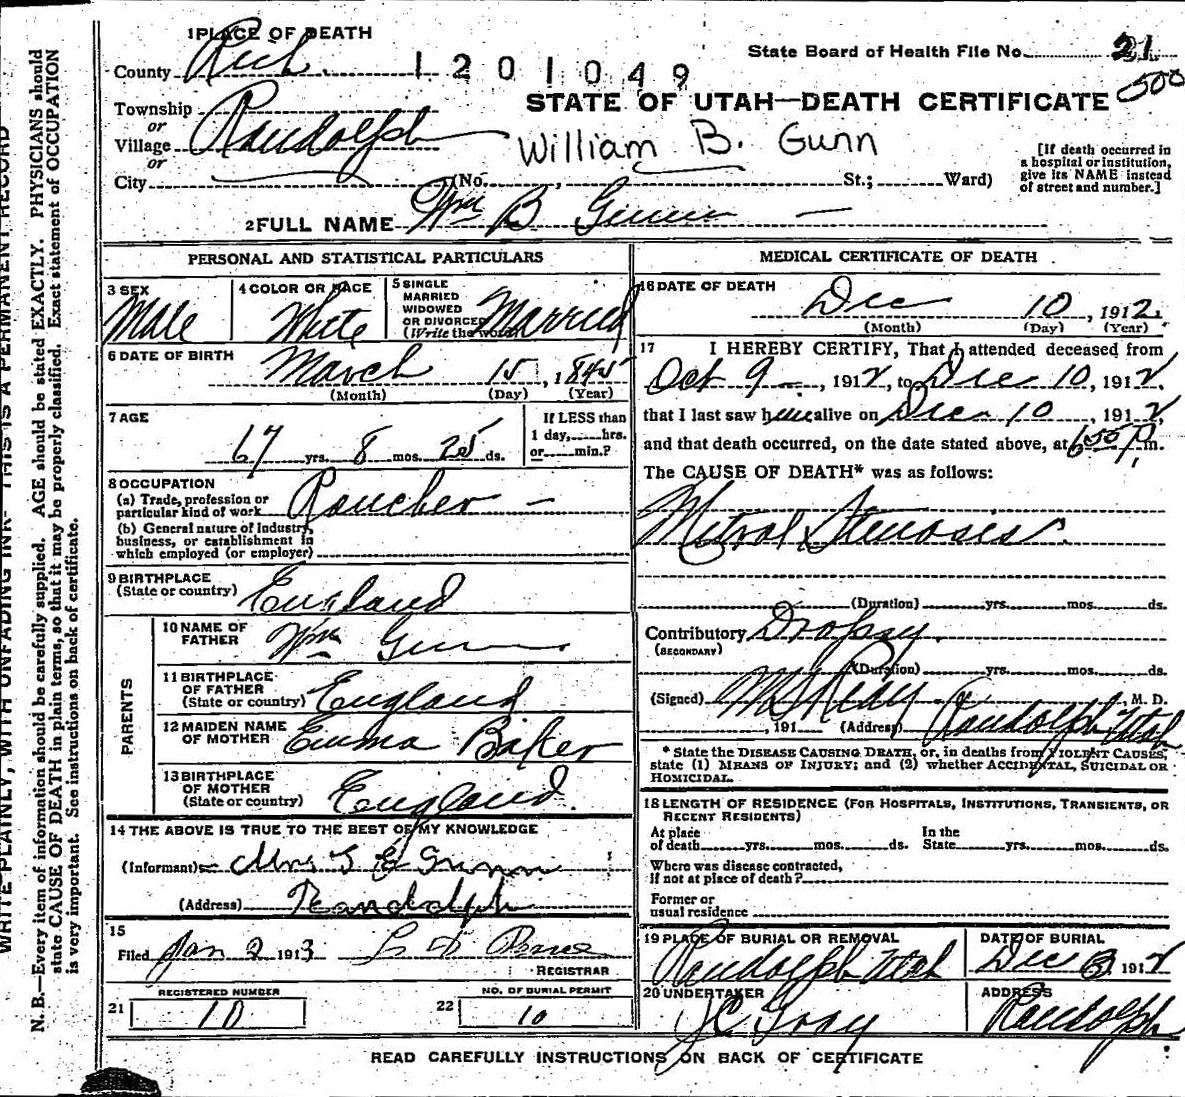 WRITE PLAINLY, WITH UNFADING INK- THIS IS A PERMANENT RECORD
N. B.—Every item of information should be carefully supplied. AGE should be stated EXACTLY. PHYSICIANS should
state CAUSE OF DEATH in plain terms, so that it may be properly classified. Exact statement of OCCUPATION
is very important. See instructions on back of certificate.
1 PLACE OF DEATH
State Board of Health File No. 21
County Rich. 1201049
500
STATE OF UTAH—DEATH CERTIFICATE
Township
or
Village Randolph
or
William B. Gunn
[If death occurred in
a hospital or institution,
give its NAME instead
of street and number.]
City (No. , St.; Ward)
2 FULL NAME Wm B Gunn
PERSONAL AND STATISTICAL PARTICULARS
3 SEX
Male
4 COLOR OR RACE
White
5 SINGLE
MARRIED
WIDOWED
OR DIVORCED
(Write the word)
Married
6 DATE OF BIRTH
March 15, 1845
(Month) (Day) (Year)
7 AGE
67 yrs. 8 mos. 25 ds.
If LESS than
1 day, hrs.
or min.?
8 OCCUPATION
(a) Trade, profession or
particular kind of work Rancher
(b) General nature of Industry,
business, or establishment in
which employed (or employer)
9 BIRTHPLACE
(State or country) England
PARENTS
10 NAME OF
FATHER Wm Gunn
11 BIRTHPLACE
OF FATHER
(State or country) England
12 MAIDEN NAME
OF MOTHER Emma Baker
13 BIRTHPLACE
OF MOTHER
(State or country) England.
14 THE ABOVE IS TRUE TO THE BEST OF MY KNOWLEDGE
(Informant) Mrs Gunn
(Address) Randolph
15
Filed Jan 2 1913
REGISTRAR
21 REGISTERED NUMBER
10
22 NO. OF BURIAL PERMIT
10
MEDICAL CERTIFICATE OF DEATH
16 DATE OF DEATH
Dec 10, 1912.
(Month) (Day) (Year)
17 I HEREBY CERTIFY, That I attended deceased from
Oct 9, 1912, to Dec 10, 1912,
that I last saw him alive on Dec 10, 1912
and that death occurred, on the date stated above, at 6 55 P m.
The CAUSE OF DEATH* was as follows:
Mitral Stenosis.
(Duration) yrs. mos. ds.
Contributory Dropsy.
(SECONDARY)
(Duration) yrs. mos. ds.
(Signed) , M. D.
, 191 (Address) Randolph Utah
* State the DISEASE CAUSING DEATH, or, in deaths from VIOLENT CAUSES,
state (1) MEANS OF INJURY; and (2) whether ACCIDENTAL, SUICIDAL OR
HOMICIDAL.
18 LENGTH OF RESIDENCE (FOR HOSPITALS, INSTITUTIONS, TRANSIENTS, OR
RECENT RESIDENTS)
At place
of death yrs. mos. ds.
In the
State yrs. mos. ds.
Where was disease contracted,
if not at place of death?
Former or
usual residence
19 PLACE OF BURIAL OR REMOVAL
Randolph Utah
DATE OF BURIAL
Dec 1912
20 UNDERTAKER
J C Gray
ADDRESS
Randolph
READ CAREFULLY INSTRUCTIONS ON BACK OF CERTIFICATE